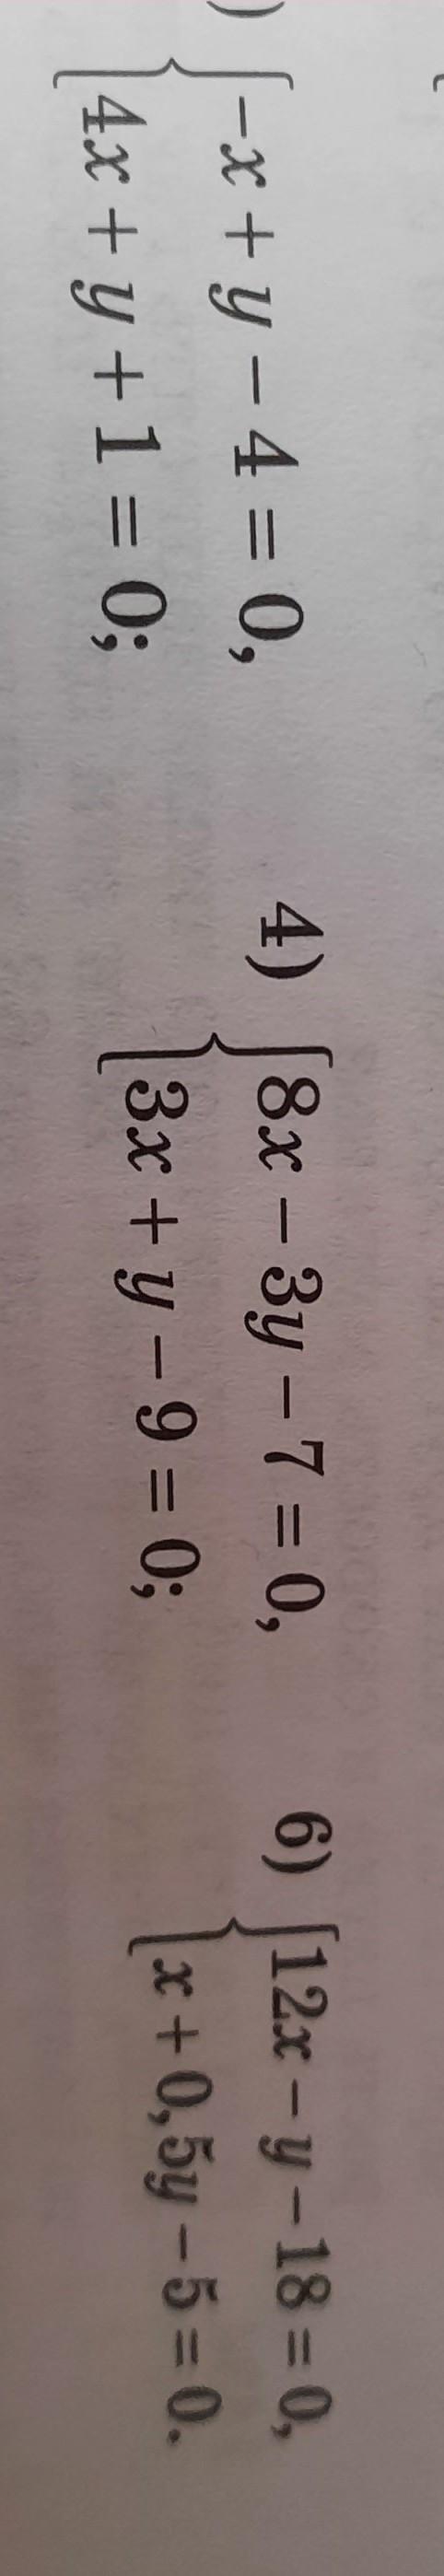 ) { -x + y - 4 = 0,
4x + y + 1 = 0;
4) { 8x - 3y - 7 = 0,
3x + y - 9 = 0;
6) { 12x - y - 18 = 0,
x + 0,5y - 5 = 0.